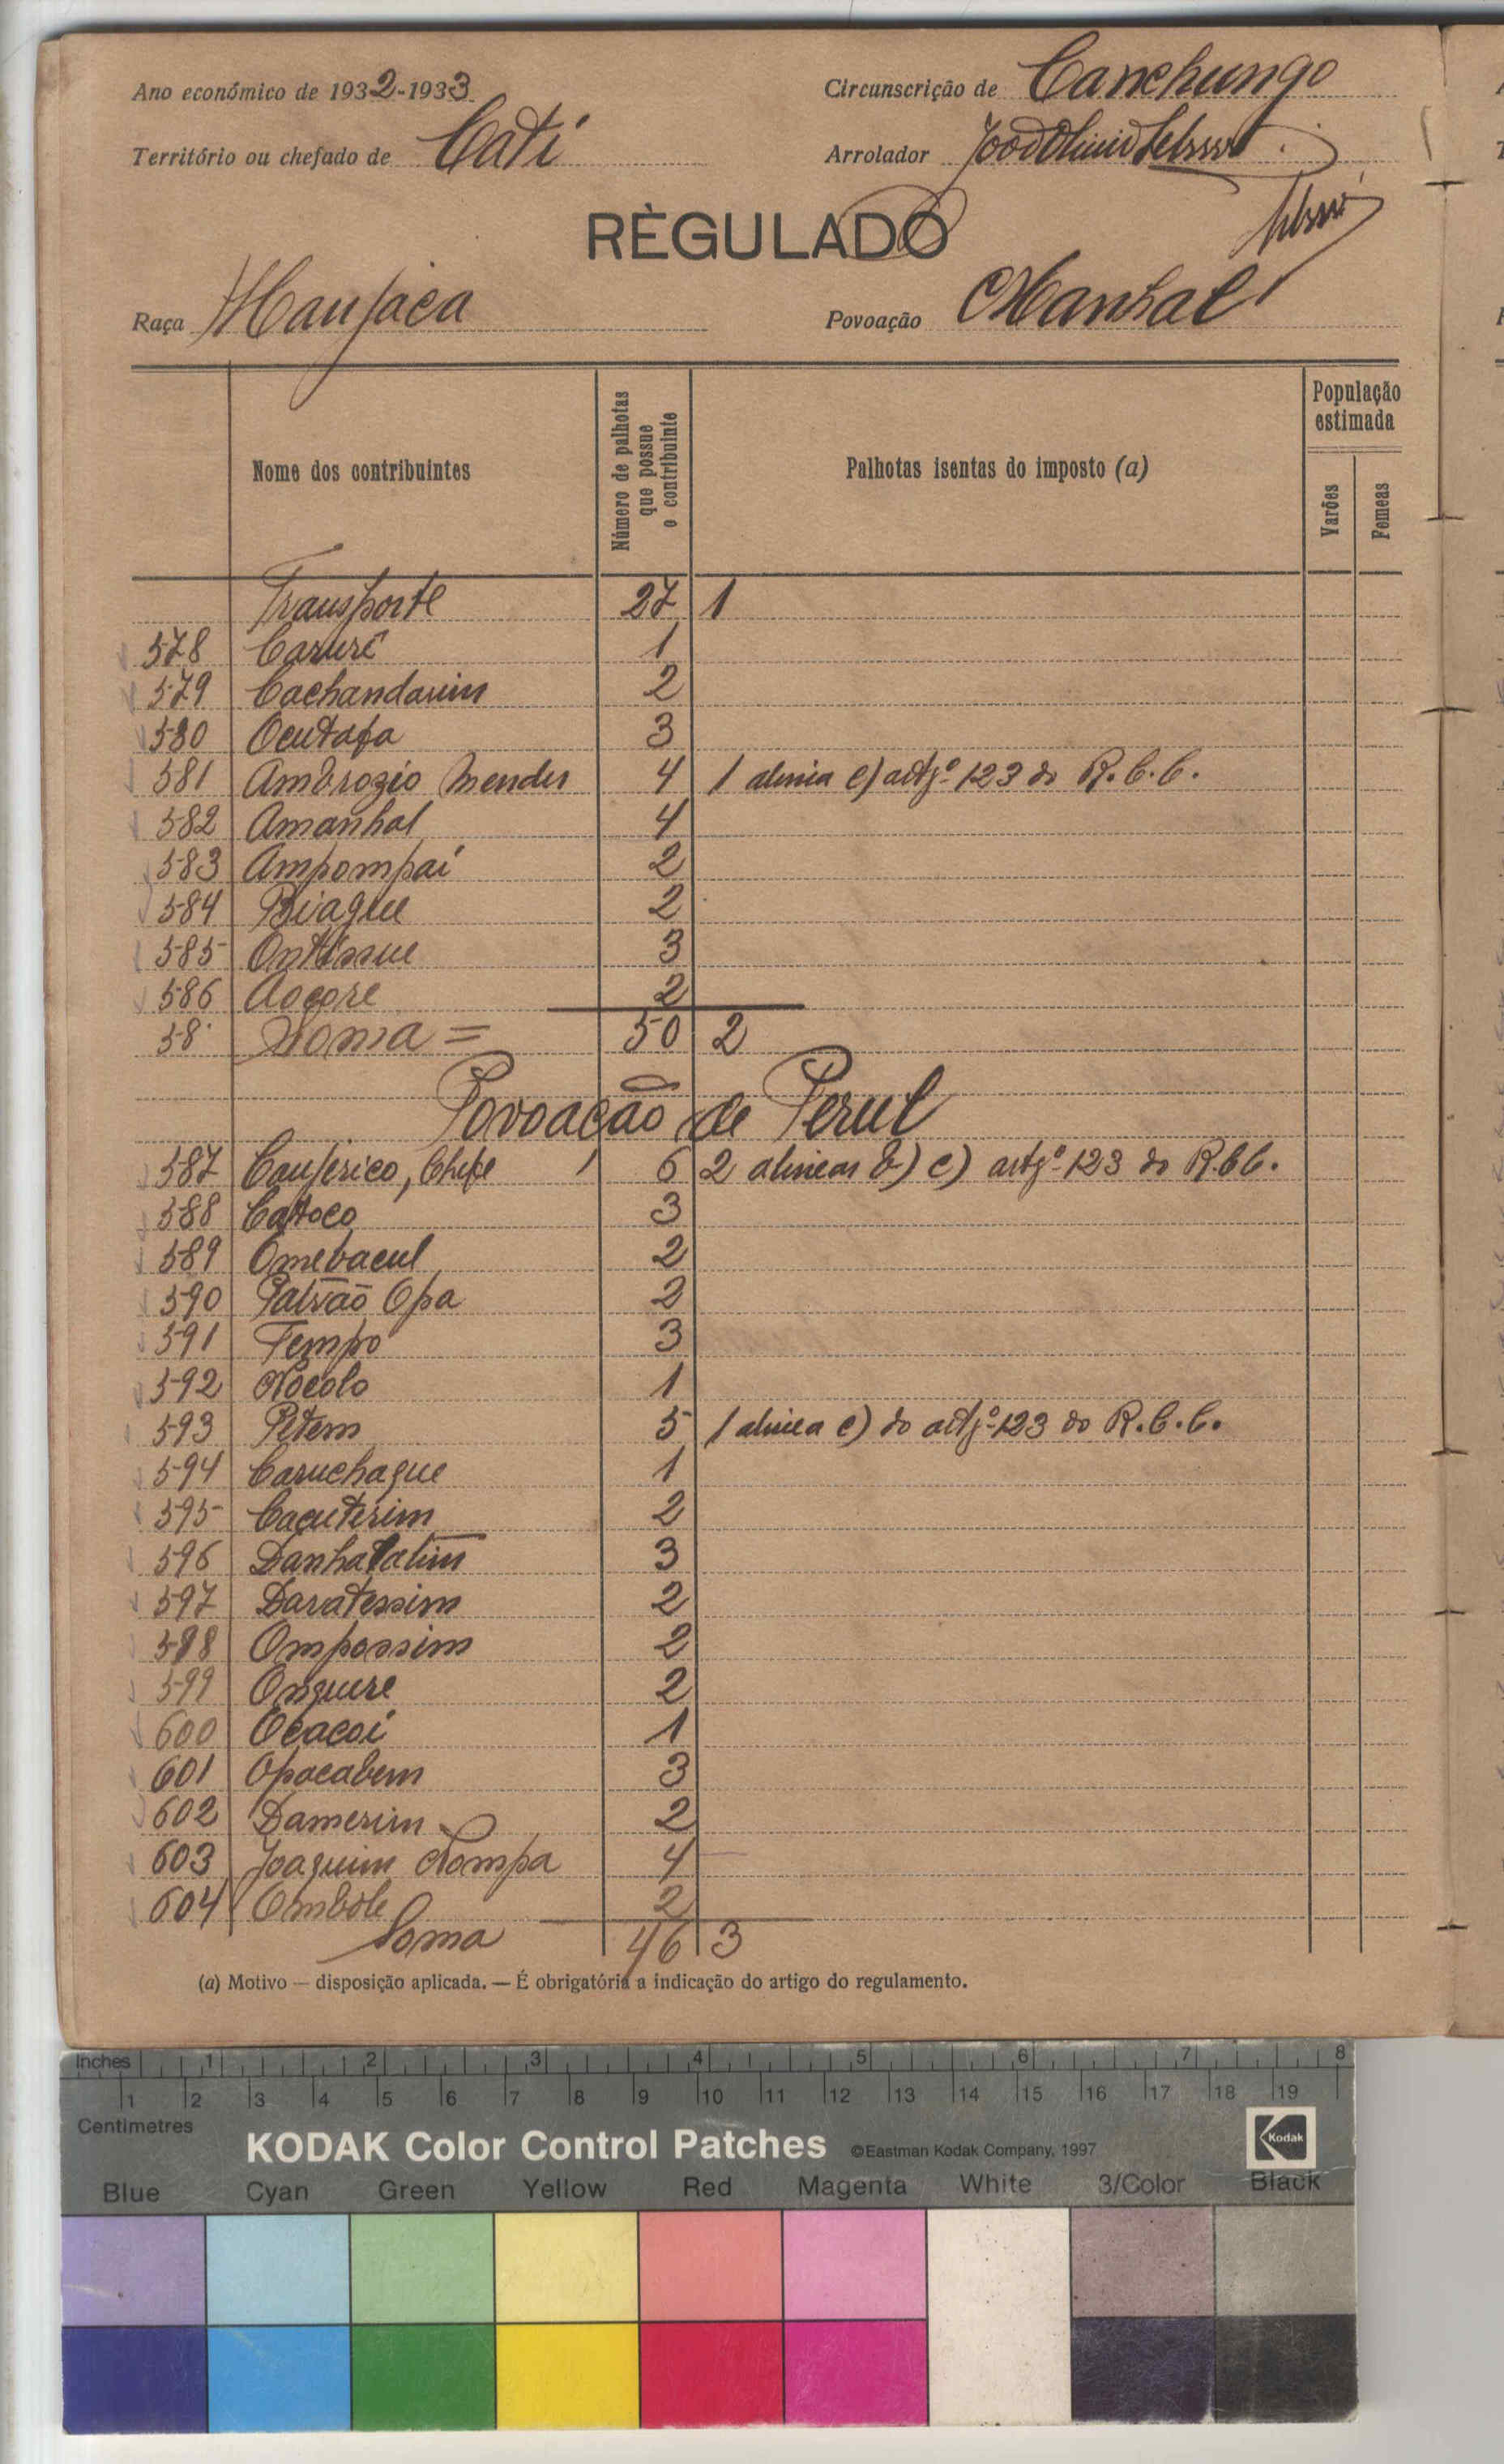 Ano económico de 1932-1933
Circunscrição de Canchungo
Território ou chefado de Cati
Arrolador
RÈGULADO
Raça Manjaca
Povoação Manhal
Nome dos contribuintes
Número de palhotas que possue o contribuinte
Palhotas isentas do imposto (a)
População estimada
Varões
Femeas
Transporte 27 1
578 Caruré 1
579 Cachandarim 2
580 Ocutafa 3
581 Ambrozio Mendes 4 1 alinia c) artgº 123 do R.C.C.
582 Amanhal 4
583 Ampompaí 2
584 Biague 2
585 Ontissue 3
586 Aocore 2
58 Soma = 50 2
Povoação de Perul
587 Canjerico, Chefe 6 2 alineas b) c) artgº 123 do R.C.C.
588 Catoco 3
589 Omebacul 2
590 Patrão Opa 2
591 Tempo 3
592 Nocolo 1
593 Petem 5 1 alinea c) do artgº 123 do R.C.C.
594 Caruchague 1
595 Cacuterim 2
596 Danhalatim 3
597 Daratessim 2
598 Ompossim 2
599 Onguere 2
600 Ocacoi 1
601 Opacabem 3
602 Damerim 2
603 Joaquim Nompa 4
604 Ombole 2
Soma 46 3
(a) Motivo — disposição aplicada. — É obrigatória a indicação do artigo do regulamento.
Inches 1 2 3 4 5 6 7 8
1 2 3 4 5 6 7 8 9 10 11 12 13 14 15 16 17 18 19
Centimetres
KODAK Color Control Patches ©Eastman Kodak Company, 1997 Kodak
Blue Cyan Green Yellow Red Magenta White 3/Color Black